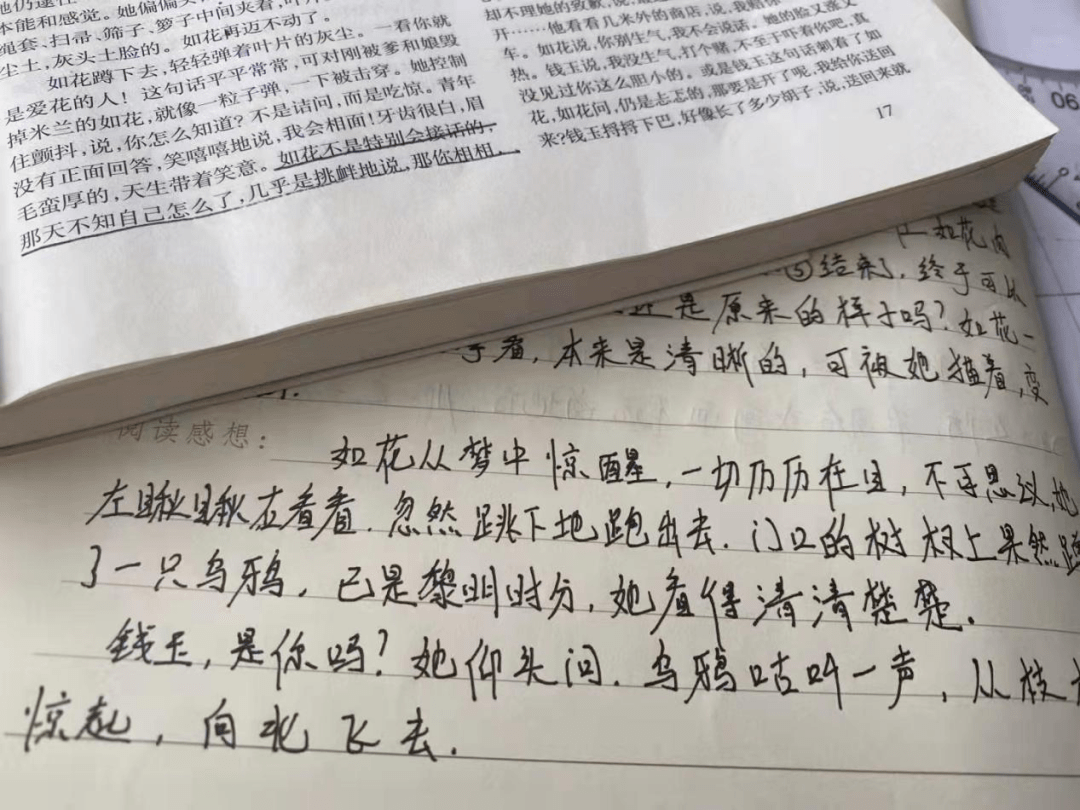 本能和感觉。她偏偏
绳套、扫帚、筛子、箩子中间夹着，
尘土，灰头土脸的。如花再迈不动了。
如花蹲下去，轻轻弹着叶片的灰尘。一看你就
是爱花的人！这句话平平常常，可对刚被爹和娘毁
掉米兰的如花，就像一粒子弹，一下被击穿。她控制
住颤抖，说，你怎么知道？不是诘问，而是吃惊。青年
没有正面回答，笑嘻嘻地说，我会相面！牙齿很白，眉
毛蛮厚的，天生带着笑意。如花不是特别会接话的，
那天不知自己怎么了，几乎是挑衅地说，那你相相，
却不理她的致歉，说，
开……他看看几米外的商店，说，我
车。如花说，你别生气，我不会说话。她的脸又
热。钱玉说，我没生气，打个赌，不至于吓着你吧，真
没见过你这么胆小的。或是钱玉这句话刺着了如
花，如花问，仍是忐忑的，那要是开了呢，我给你送回
来？钱玉捋捋下巴，好像长了多少胡子，说，送回来就
17
06
如花
⑤结束了，终于可以
是原来的样子吗？如花一
看，本来是清晰的，可被她描着，变
阅读感想：
如花从梦中惊醒，一切历历在目，不可思议，她
左瞅瞅右看看，忽然跳下地跑出去。门口的树杈上果然蹲
了一只乌鸦，已是黎明时分，她看得清清楚楚。
钱玉，是你吗？她仰头问。乌鸦咕叫一声，从枝
惊起，向北飞去。